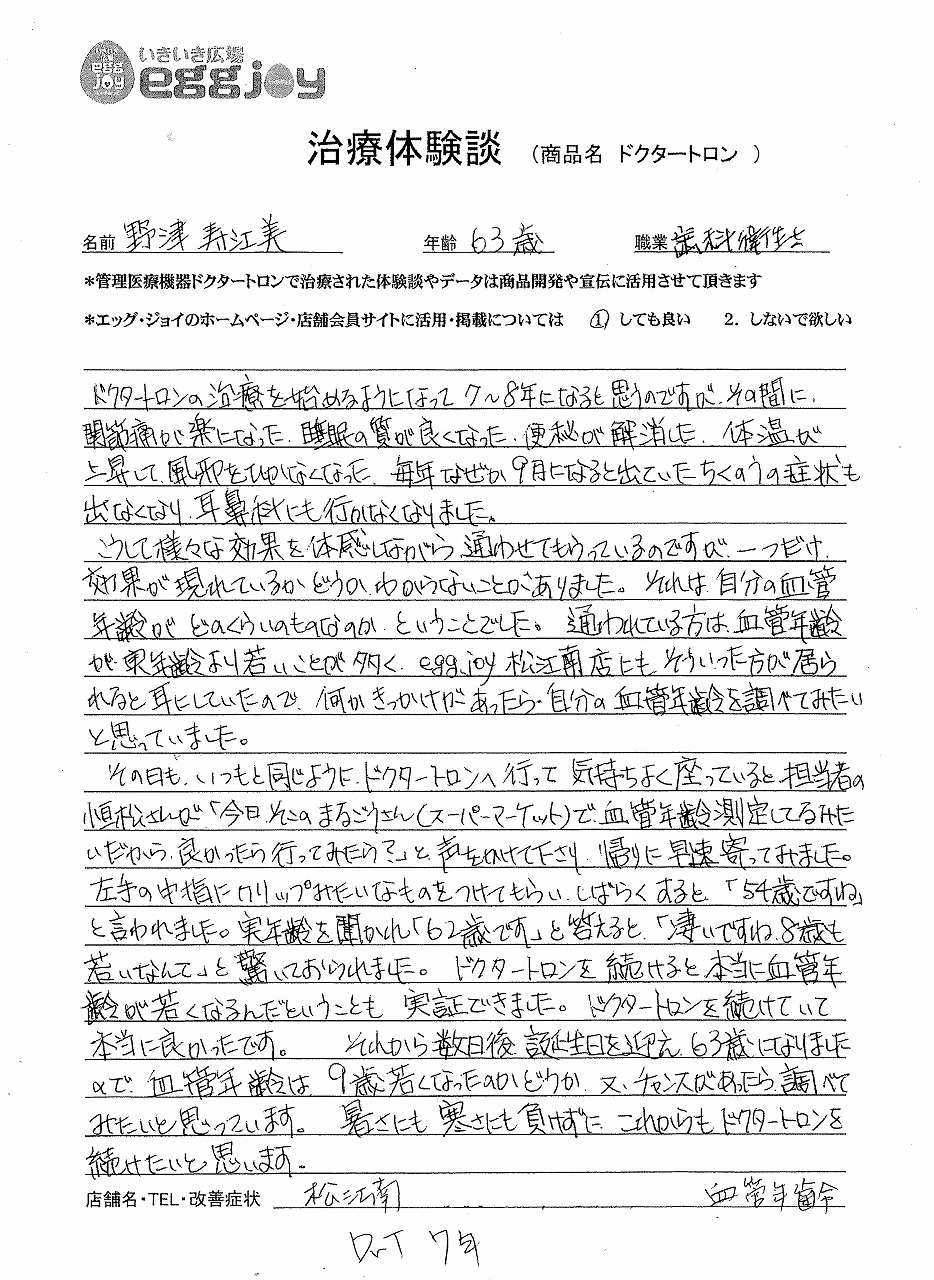 いきいき広場
egg joy
egg joy
治療体験談 （商品名 ドクタートロン ）
名前 野津 寿江美 年齢 63歳 職業 歯科衛生士
＊管理医療機器ドクタートロンで治療された体験談やデータは商品開発や宣伝に活用させて頂きます
＊エッグ・ジョイのホームページ・店舗会員サイトに活用・掲載については ① しても良い 2．しないで欲しい
ドクタートロンの治療を始めるようになって 7～8年になると思うのですが、その間に、
関節痛が楽になった、睡眠の質が良くなった、便秘が解消した、体温が
上昇して、風邪をひかなくなった、毎年なぜか9月になると出ていたちくのうの症状も
出なくなり、耳鼻科にも行かなくなりました。
こうして様々な効果を体感しながら、通わせてもらっているのですが、一つだけ、
効果が現れているかどうか、わからないことがありました。それは、自分の血管
年齢が、どのくらいのものなのか、ということでした。通われている方は、血管年齢
が、実年齢より若いことが多く、egg joy 松江南店にも、そういった方が居ら
れると耳にしていたので、何かきっかけがあったら、自分の血管年齢を調べてみたい
と思っていました。
その日も、いつもと同じように、ドクタートロンへ行って気持ちよく座っていると、担当者の
恒松さんが「今日、そこのまるごうさん(スーパーマーケット)で、血管年齢測定してるみた
いだから、良かったら行ってみたら？」と、声をかけて下さり、帰りに早速寄ってみました。
左手の中指にクリップみたいなものをつけてもらい、しばらくすると、「54歳ですね」
と言われました。実年齢を聞かれ「62歳です」と答えると、「凄いですね、8歳も
若いなんて」と驚いておられました。ドクタートロンを続けると本当に血管年
齢が若くなるんだということも、実証できました。ドクタートロンを続けていて
本当に良かったです。 それから数日後、誕生日を迎え、63歳になりました
ので、血管年齢は、9歳若くなったのかどうか、又、チャンスがあったら、調べて
みたいと思っています。暑さにも寒さにも負けずに、これからもドクタートロンを
続けたいと思います。
店舗名・TEL・改善症状 松江南 血管年齢
Dr.T 7年